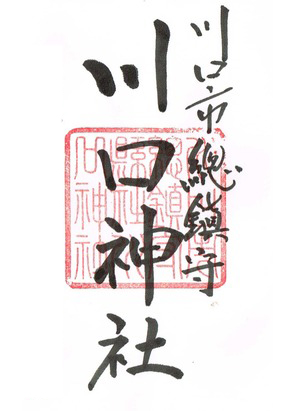 川口市總鎮守
川口神社